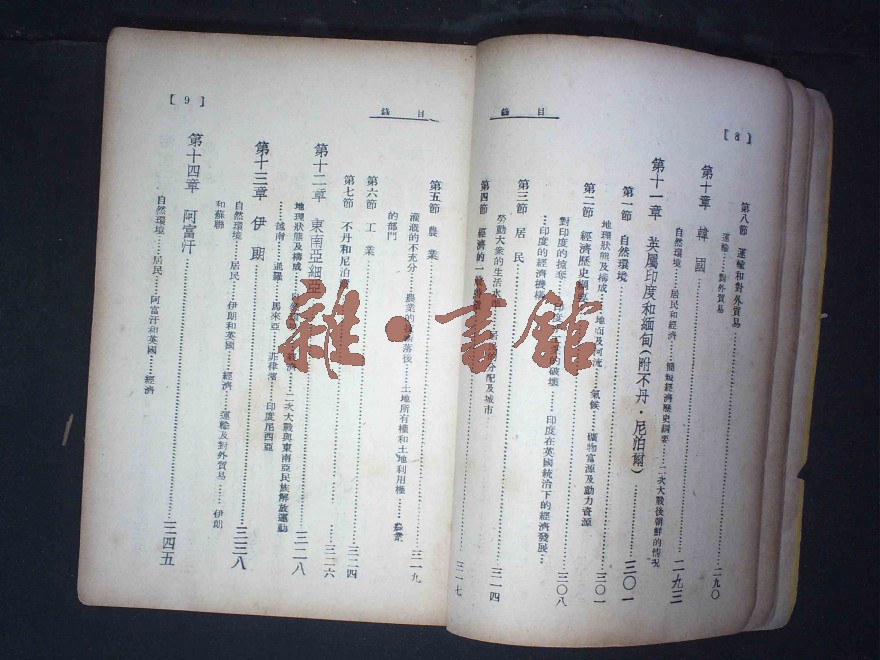 目錄
[8]
第八節 運輸和對外貿易……二九〇
運輸……對外貿易
第十章 韓國……二九三
自然環境……居民和經濟……簡短經濟歷史綱要……二次大戰後朝鮮的情況
第十一章 英屬印度和緬甸(附不丹・尼泊爾)……三〇一
第一節 自然環境……三〇一
地理狀態及構成……地面及河流……氣候……礦物富源及動力資源
第二節 經濟歷史綱要……三〇八
對印度的掠奪……印度……的破壞……印度在英國統治下的經濟發展…
…印度的經濟機構
第三節 居民……三一四
勞動大眾的生活水……分配及城市
第四節 經濟的一般……三一七
目錄
[9]
第五節 農業……三一九
灌溉的不充分……農業的技術落後……土地所有權和土地利用權……農業
的部門
第六節 工業……三二四
第七節 不丹和尼泊爾……三二六
第十二章 東南亞細亞……三二八
地理狀態及構成……經濟……二次大戰與東南亞民族解放運動
……越南……暹羅……馬來亞……菲律濱……印度尼西亞
第十三章 伊朗……三三八
自然環境……居民……伊朗和英國……經濟……運輸及對外貿易……伊朗
和蘇聯
第十四章 阿富汗……三四五
自然環境……居民……阿富汗和英國……經濟
雜・書館